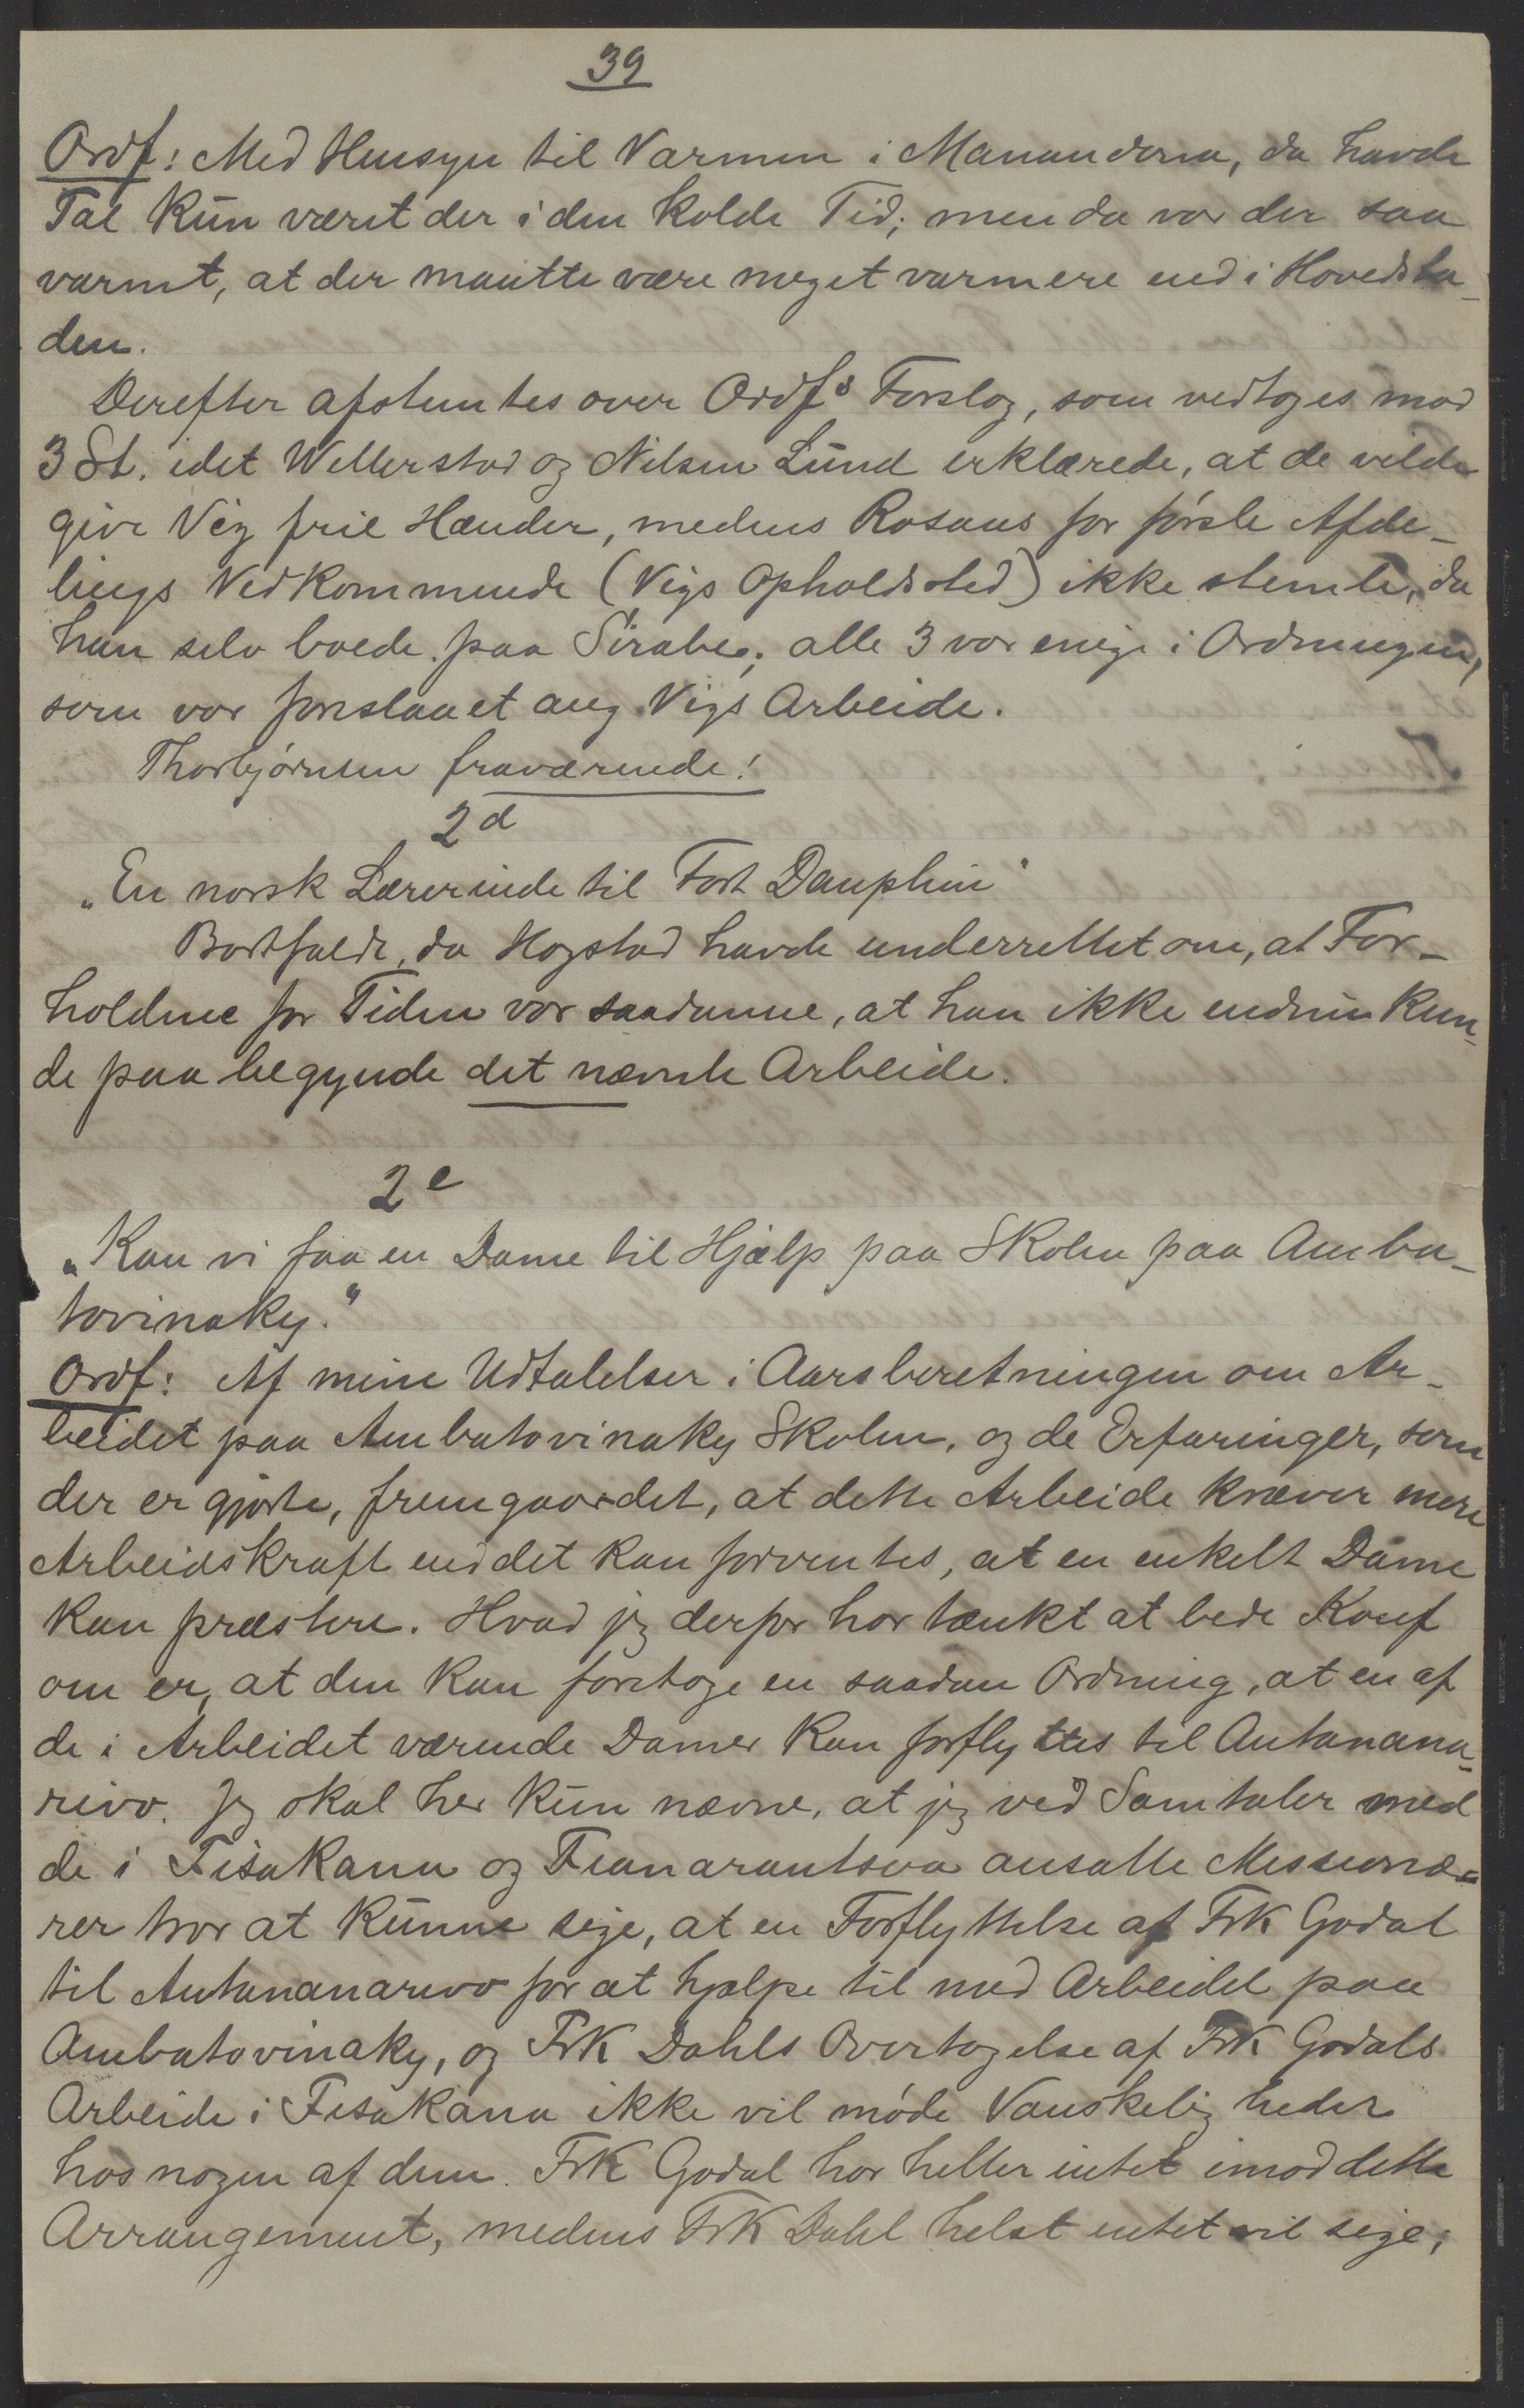 39
Ordf: Med Hensyn til Varmen i Manandona, da havde
Tal kun været der i den kolde Tid; men da var der saa
varmt, at der maatte være meget varmere end i Hovedsta-
den.
Derefter afstemtes over Ordfs Forslag, som vedtoges mod
3 St. idet Wellerstad og Nilsen Lund erklærede, at de vilde
give Vig frie Hænder, medens Rosaas for første Afde-
lings Vedkommende (Vigs Opholdssted) ikke stemte, da
han selv boede paa Sirabe; alle 3 var enige i Ordningen,
som var foreslaaet ang. Vigs Arbeide.
Thorbjørnsen fraværende!
2d
"En norsk Lærerinde til Fort Dauphin"
Bortfaldt, da Hogstad havde underrettet om, at For-
holdene for Tiden var saadanne, at han ikke endnu kun-
de paabegynde det nævnte Arbeide.
2e
"Kan vi faa en Dame til Hjælp paa Skolen paa Amba-
tovinaky."
Ordf: Af mine Udtalelser i Aarsberetningen om Ar-
beidet paa Ambatovinaky Skolen, og de Erfaringer, som
der er gjorte, fremgaar det, at dette Arbeide kræver mere
Arbeidskraft end det kan forventes, at en enkelt Dame
kan præstere. Hvad jeg derfor har tænkt at bede Konf
om er, at den kan foretage en saadan Ordning, at en af
de i Arbeidet værende Damer kan forflyttes til Antanana-
rivo. Jeg skal her kun nævne, at jeg ved Samtaler med
de i Fisakana og Fianarantsoa ansatte Missionæ-
rer tror at kunne sige, at en Forflyttelse af Frk Godal
til Antananarivo for at hjælpe til med Arbeidet paa
Ambatovinaky, og Frk Dahls Overtagelse af Frk Godals
Arbeide i Fisakana ikke vil møde Vanskeligheder
hos nogen af dem. Frk Godal har heller intet imod dette
Arrangement, medens Frk Dahl helst intet vil sige;